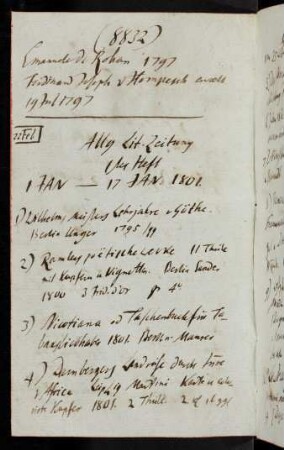 (8832)
Emanuel de Rohan 1797
Ferdinand Joseph v Hompesch erwält
19 Jul 1797
22 Feb
Allg Lit. Zeitung
1 JAN — 17 JAN. 1801.
1) Wilhelms Meisters Lehrjahre v Göthe.
Berlin Unger 1795
2) Ramlers pöetische Werke II Theile
mit Kupfern u Vignetten. Berlin Sander
1800 3 Frd.d'or 4°
3) Nicotiana od Taschenbuch für Ta-
baksliebhaber 1801. Berlin Maurer
4) Dambergers Landreise durch
Africa Leipzig Martini
Kupfer 1801. 2 Theile. 2